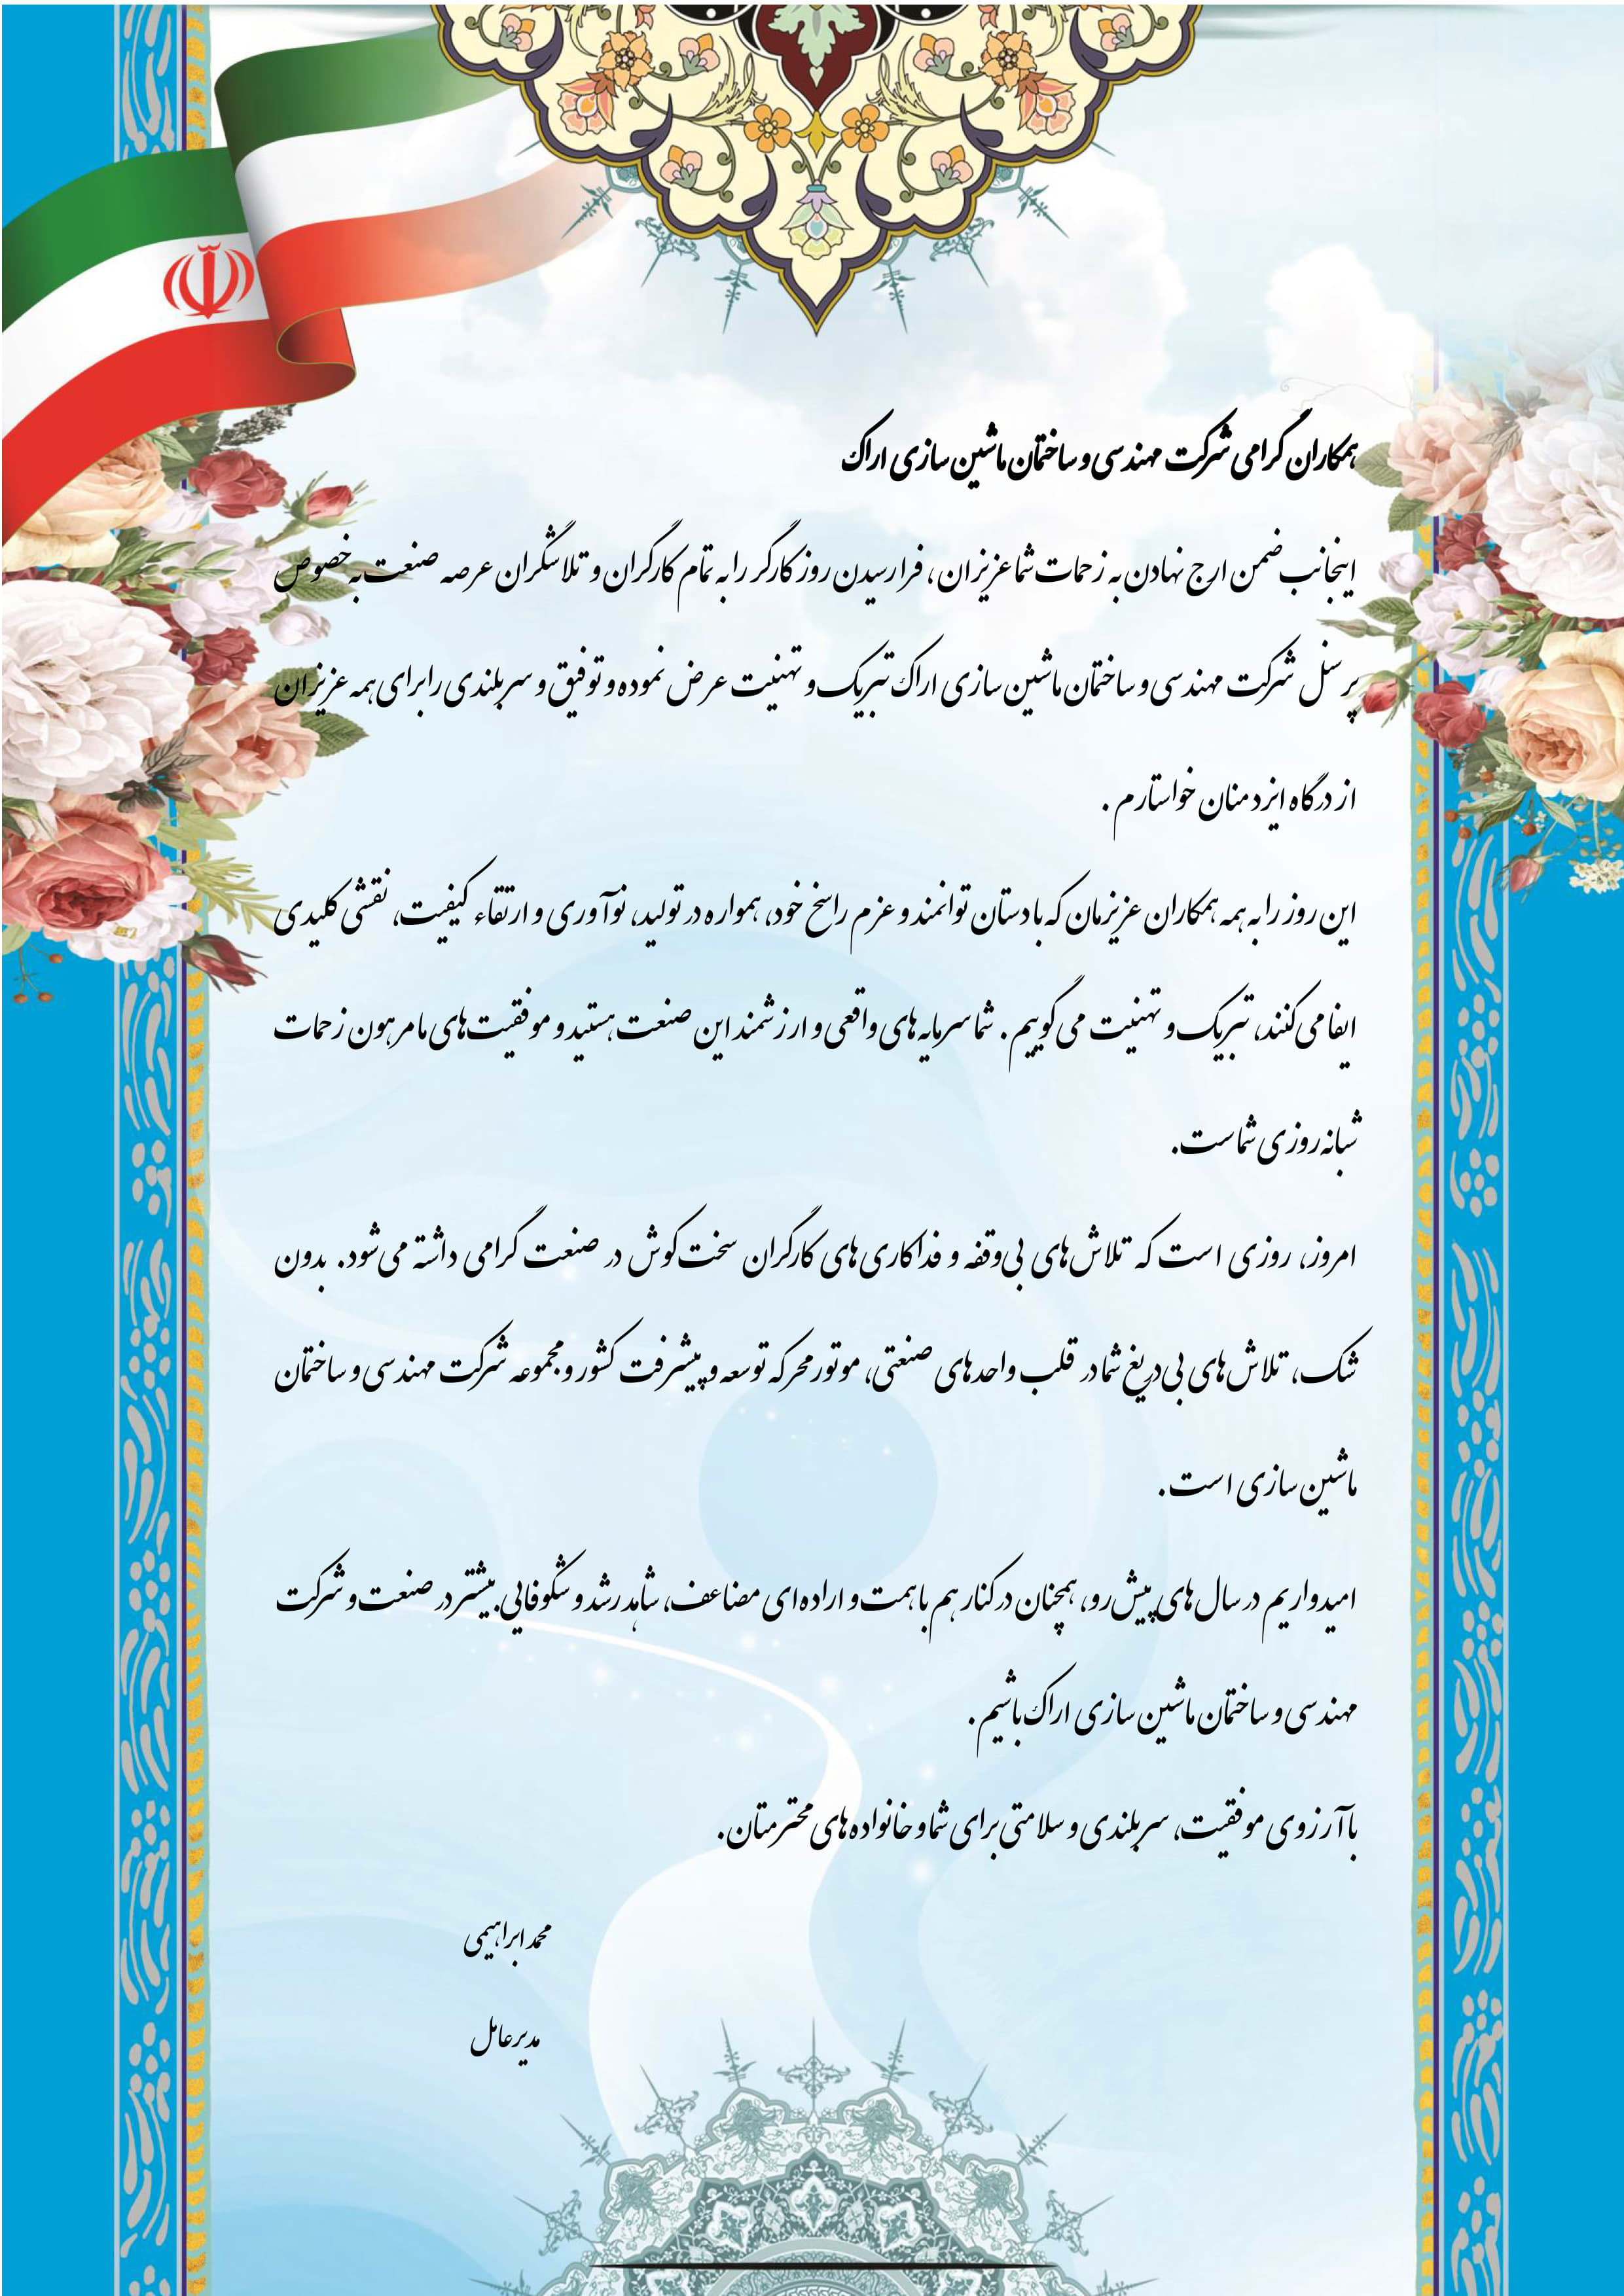 همکاران گرامی شرکت مهندسی و ساختمان ماشین سازی اراک
اینجانب ضمن ارج نهادن به زحمات شما عزیزان ، فرارسیدن روز کارگر را به تمام کارگران و تلاشگران عرصه صنعت به خصوص
پرسنل شرکت مهندسی و ساختمان ماشین سازی اراک تبریک و تهنیت عرض نموده و توفیق و سربلندی را برای همه عزیزان
از درگاه ایزد منان خواستارم .
این روز را به همه همکاران عزیزمان که با دستان توانمند و عزم راسخ خود، همواره در تولید، نوآوری و ارتقاء کیفیت، نقشی کلیدی
ایفا می‌کنند، تبریک و تهنیت می گوییم . شما سرمایه های واقعی و ارزشمند این صنعت هستید و موفقیت‌های ما مرهون زحمات
شبانه روزی شماست.
امروز، روزی است که تلاش‌های بی‌وقفه و فداکاری های کارگران سخت‌کوش در صنعت گرامی داشته می‌شود. بدون
شک، تلاش‌های بی‌دریغ شما در قلب واحدهای صنعتی، موتور محرکه توسعه و پیشرفت کشور و مجموعه شرکت مهندسی و ساختمان
ماشین سازی است.
امیدواریم در سال های پیش‌رو، همچنان در کنار هم با همت و اراده‌ای مضاعف، شاهد رشد و شکوفایی بیشتر در صنعت و شرکت
مهندسی و ساختمان ماشین سازی اراک باشیم .
با آرزوی موفقیت، سربلندی و سلامتی برای شما و خانواده های محترمتان.
محمد ابراهیمی
مدیرعامل